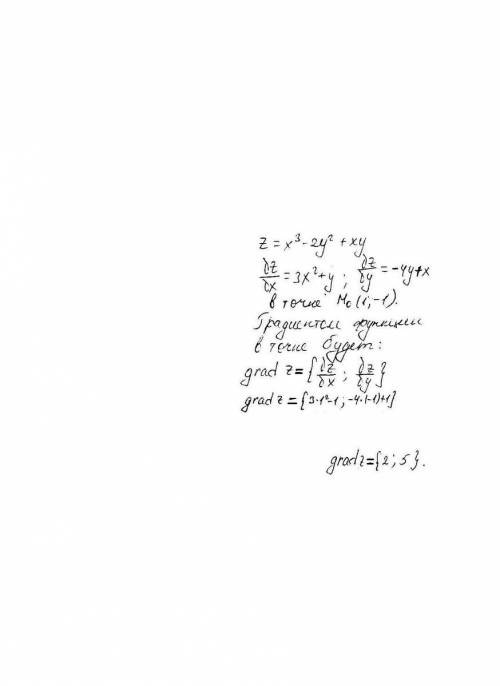 z = x³ - 2y² + xy
∂z/∂x = 3x² + y ; ∂z/∂y = -4y + x
в точке M₀ (1; -1).
Градиентом функции
в точке будет:
grad z = {∂z/∂x ; ∂z/∂y}
grad z = {3·1²-1 ; -4·(-1)+1}
grad z = {2; 5}.